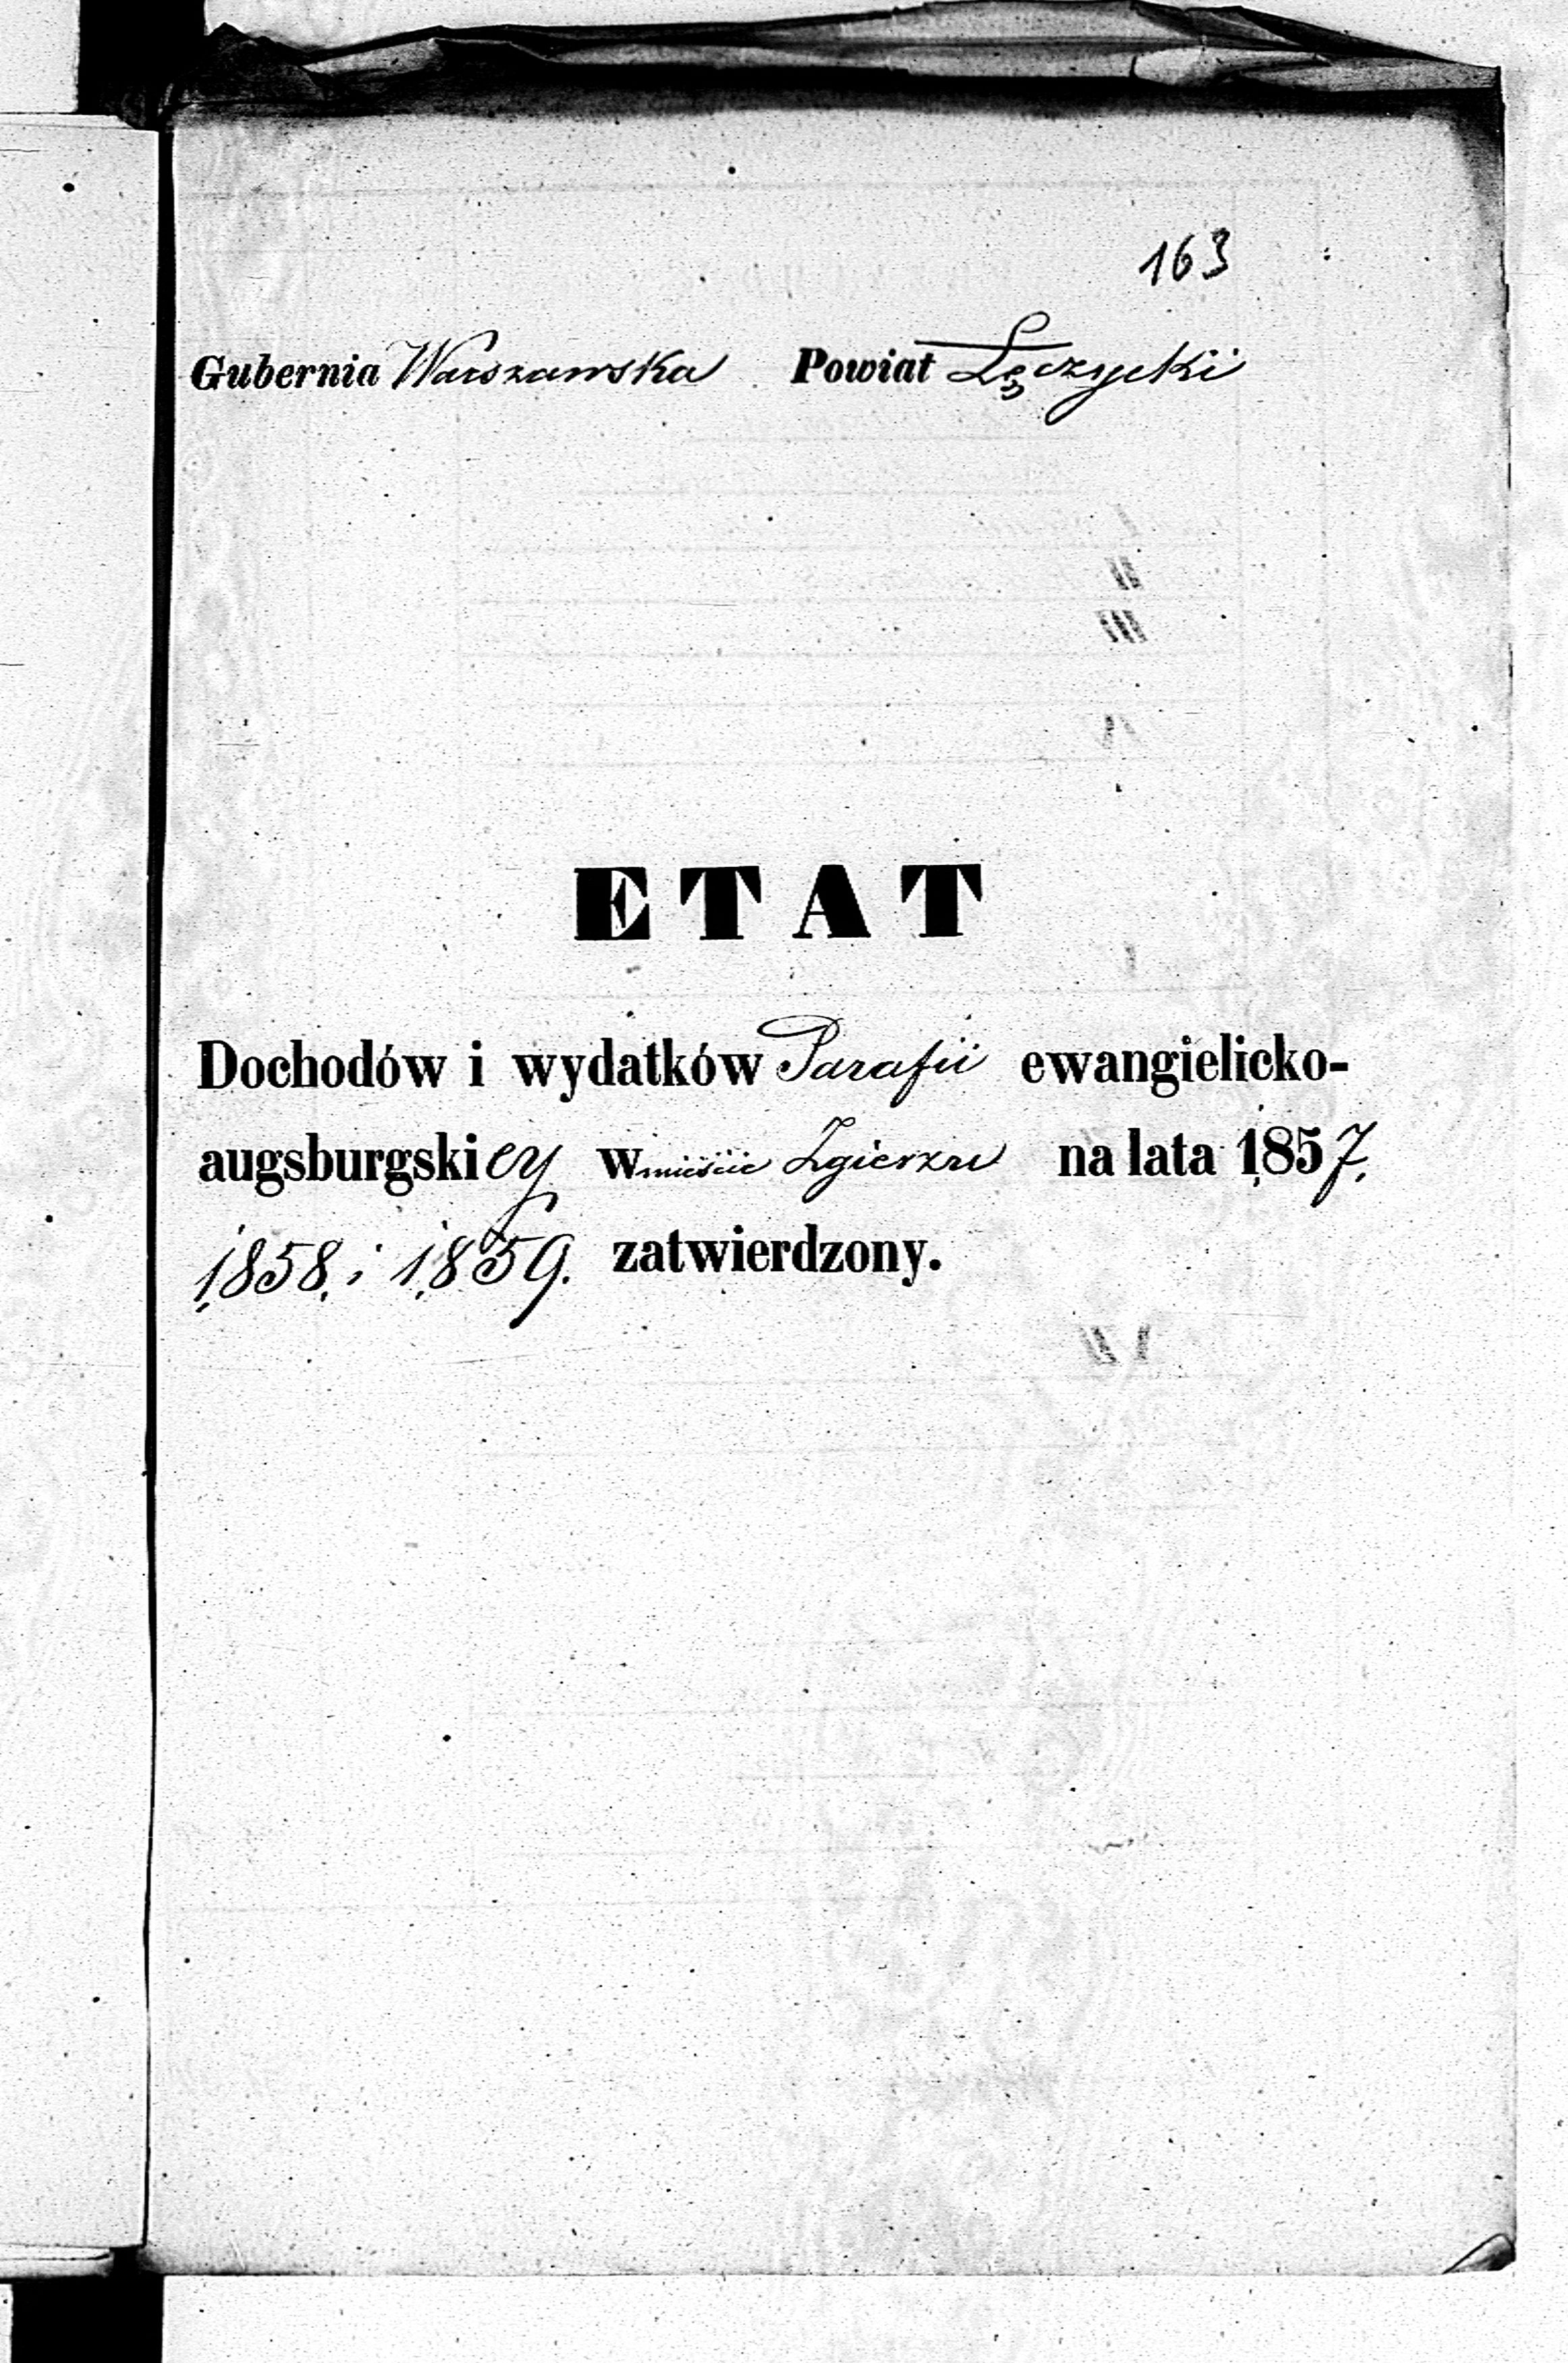 163
Gubernia Warszawska Powiat Łęczycki
ETAT
Dochodów i wydatków Parafii ewangielicko-
augsburgskiey w mieście Zgierzu na lata 1857,
1858, i 1859. zatwierdzony.